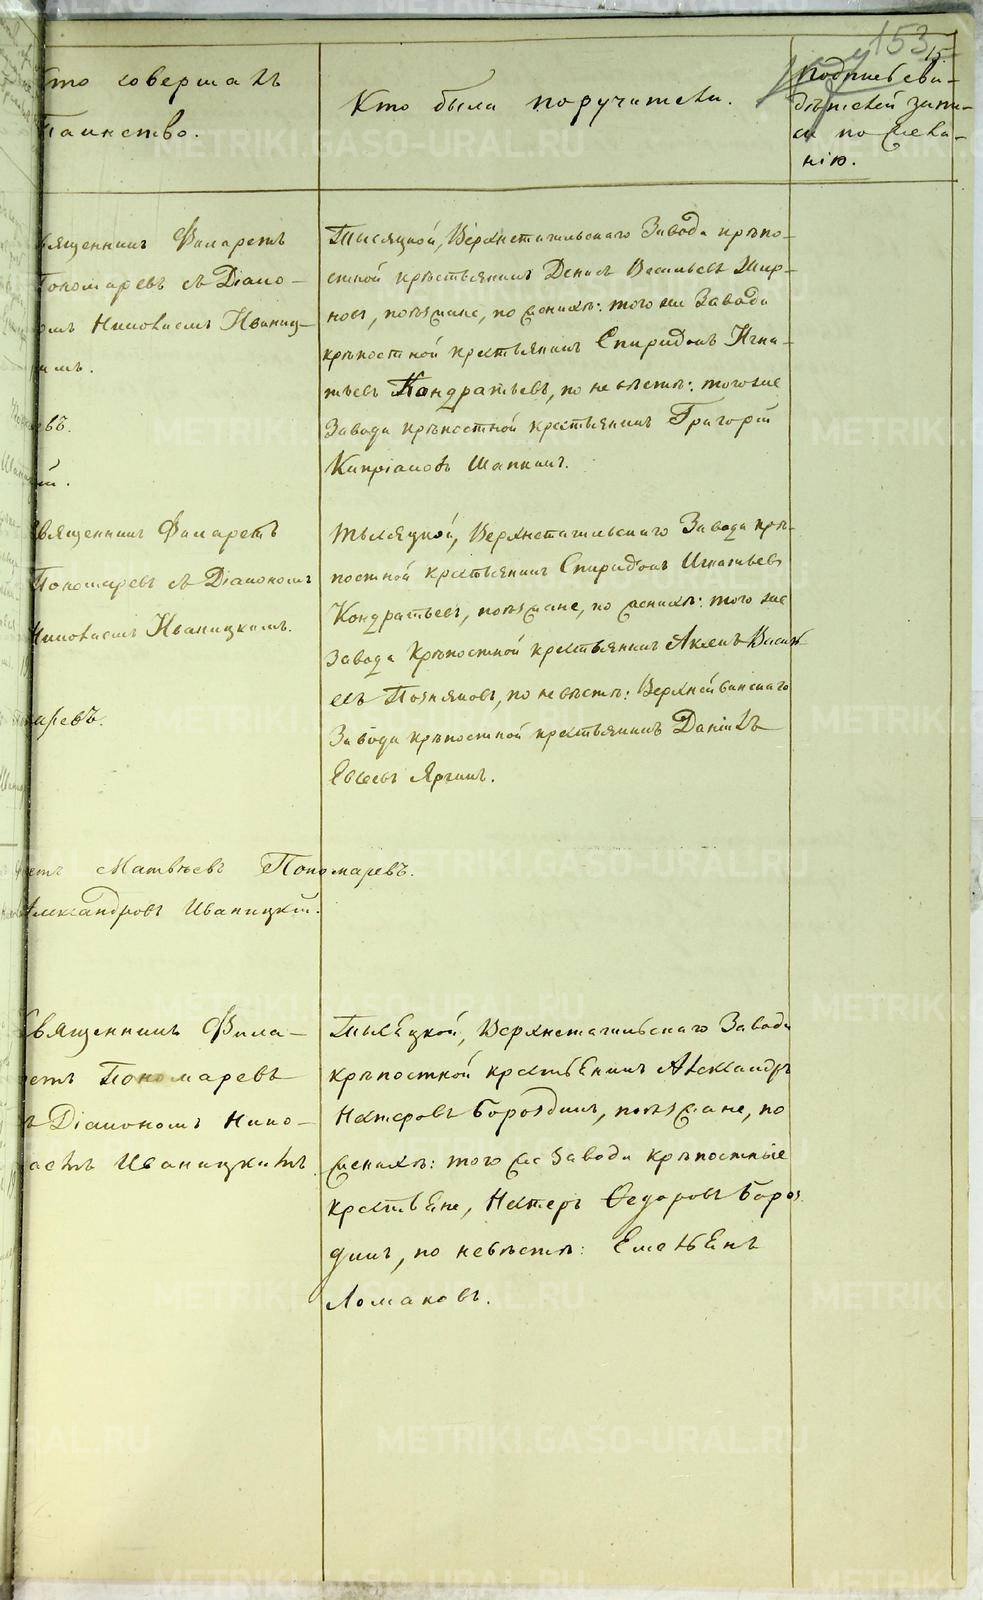 153
Кто совершалъ
Таинство.
Кто были поручители.
Подпись сви-
дѣтелей запи-
си по жела-
нію.
Священникъ Филаретъ
Пономаревъ съ Діако-
номъ Николаемъ Иваниц-
кимъ.
Тысяцкой, Верхнетагильскаго Завода крѣпо-
стной крестьянинъ Денисъ Васильевъ
поѣзжане, по женихѣ: того же Завода
крѣпостной крестьянинъ Спиридонъ Игна-
тьевъ Кондратьевъ, по невѣстѣ: того же
Завода крѣпостной крестьянинъ Григорій
Кипріановъ Шапкинъ.
Священникъ Филаретъ
Пономаревъ съ Діакономъ
Николаемъ Иваницкимъ.
Тысяцкой, Верхнетагильскаго Завода крѣ-
постной крестьянинъ Спиридонъ Игнатьевъ
Кондратьевъ, поѣзжане, по женихѣ: того же
Завода крѣпостной крестьянинъ Василь-
евъ Позняковъ, по невѣстѣ: Верхнейвинскаго
Завода крѣпостной крестьянинъ Даніилъ
Евсѣевъ Яргинъ.
Матвѣевъ Пономаревъ.
Александровъ Иваницкій.
Священникъ Фила-
ретъ Пономаревъ
съ Діакономъ Нико-
лаемъ Иваницкимъ.
Тысяцкой, Верхнетагильскаго Завода
крѣпостной крестьянинъ Александръ
Нестеровъ Бороздинъ, поѣзжане, по
женихѣ: того же Завода крѣпостные
крестьяне, Нестеръ Ѳедоровъ Бороз
динъ, по невѣстѣ: Емельянъ
Ломаковъ.
METRIKI.GASO-URAL.RU